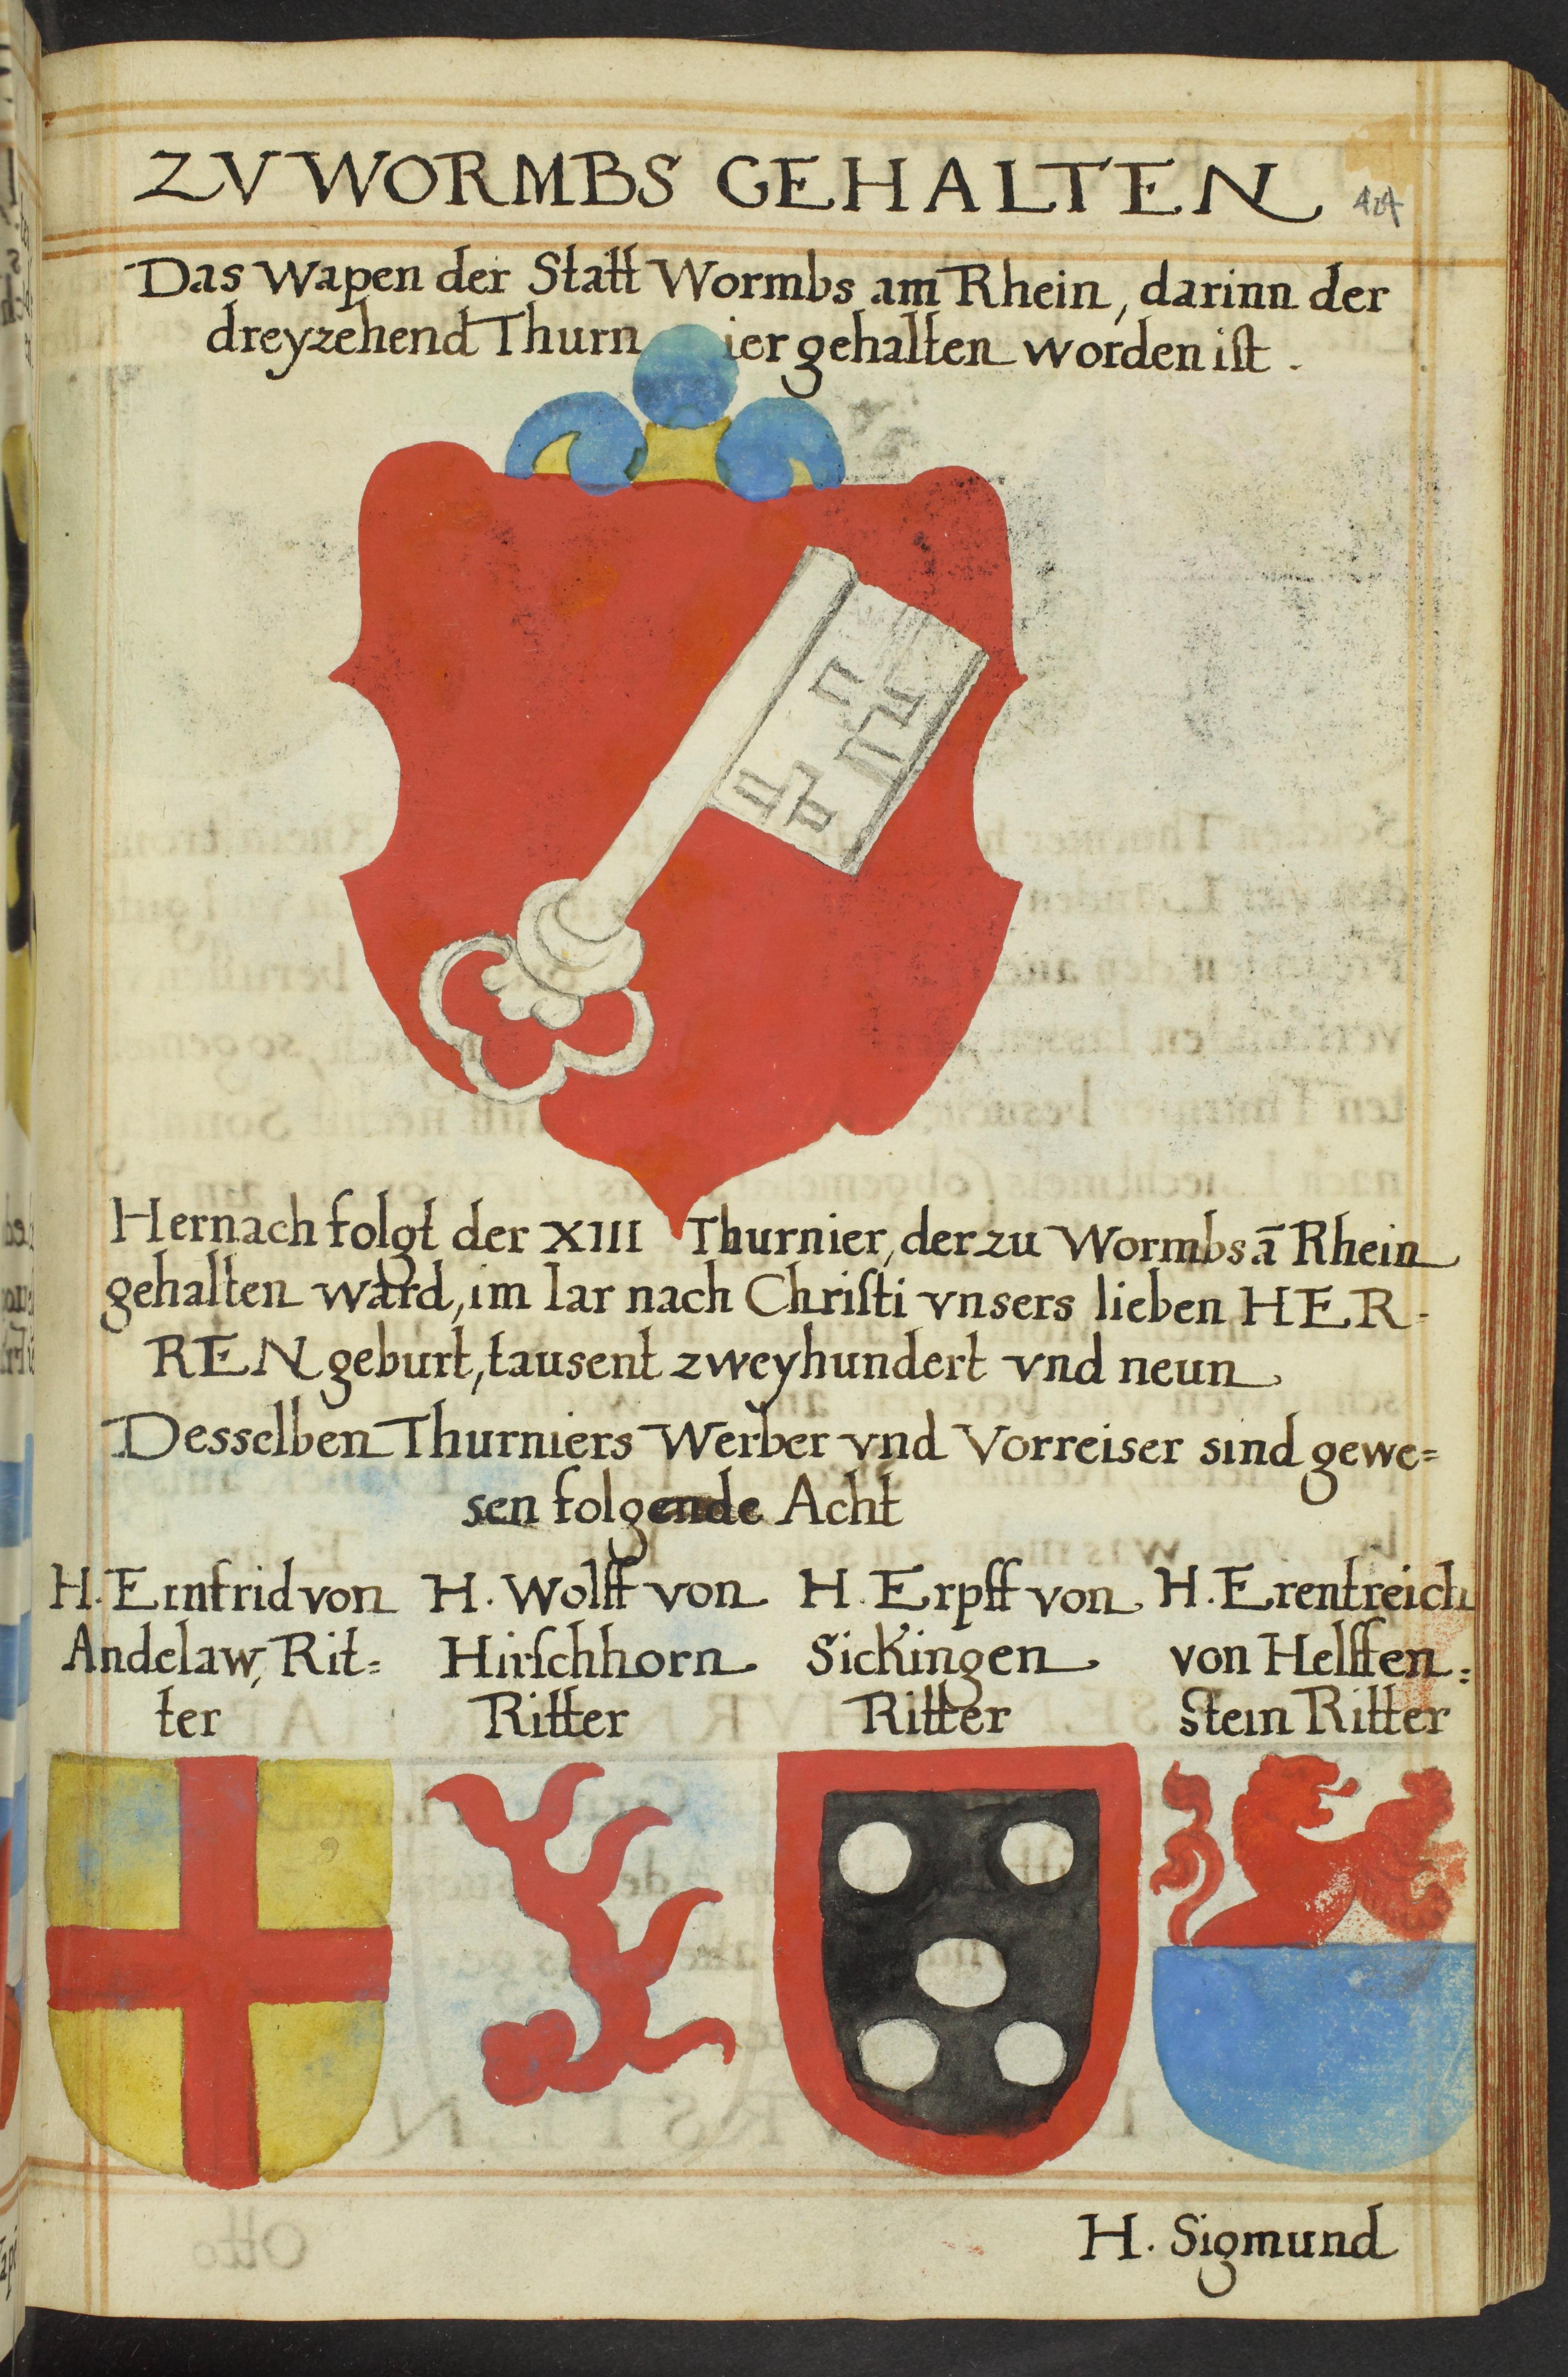 ZV WORMBS GEHALTEN
Das Wapen der Statt Wormbs am Rhein, darinn der
dreyzehend Thurnier gehalten worden ist.
Hernach folgt der XIII Thurnier, der zu Wormbs ā Rhein
gehalten ward, im Iar nach Christi vnsers lieben HER-
REN geburt, tausent zweyhundert vnd neun
Desselben Thurniers Werber vnd Vorreiser sind gewe=
sen folgende Acht
H. Ernfrid von
Andelaw, Rit=
ter
H. Wolff von
Hirschhorn
Ritter
H. Erpff von
Sickingen
Ritter
H. Erenfreich
von Helffen=
Stein Ritter
H. Sigmund